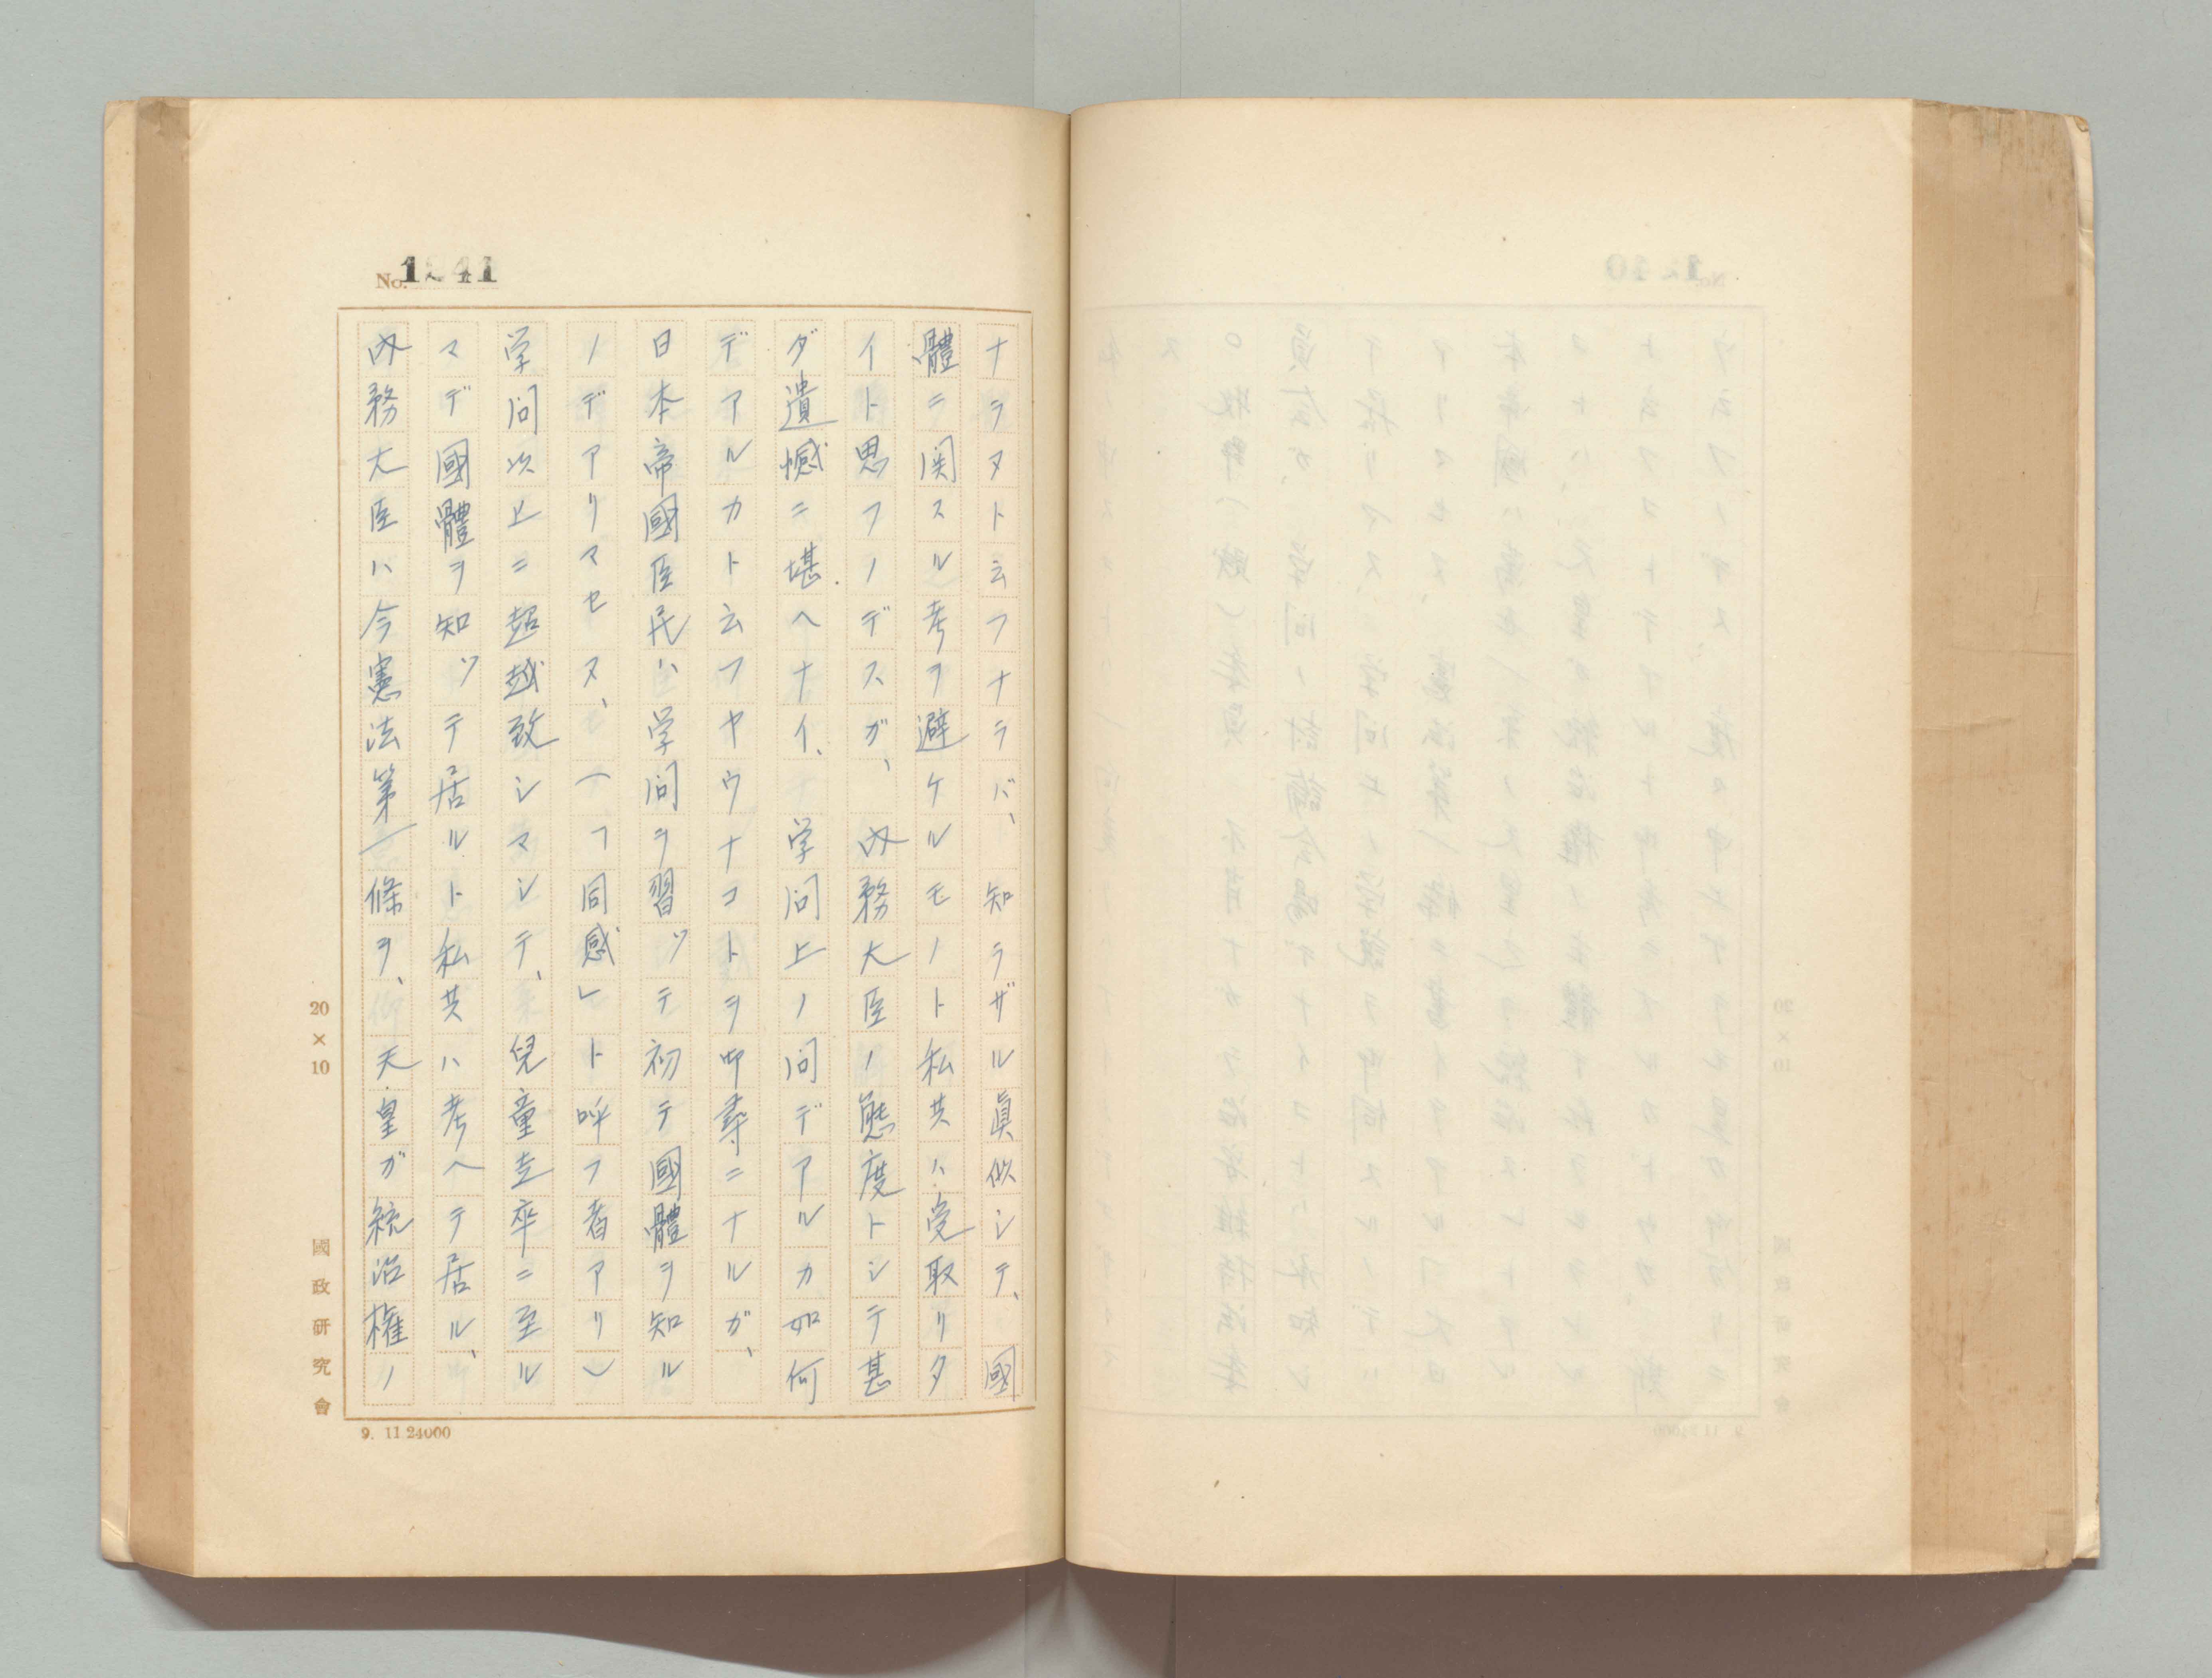 No. 1241
ナラヌト云フナラバ、知ラザル眞似シテ、國
體ニ関スル考ヲ避ケルモノト私共ハ受取リタ
イト思フノデスガ、内務大臣ノ態度トシテ甚
ダ遺憾ニ堪ヘナイ、学問上ノ問デアルカ如何
デアルカト云フヤウナコトヲ御尋ニナルガ、
日本帝國臣民ハ学問ヲ習ッテ初テ國體ヲ知ル
ノデアリマセヌ、(「同感」ト呼フ者アリ)
学問以上ニ超越致シマシテ、兒童走卒ニ至ル
マデ國體ヲ知ッテ居ルト私共ハ考ヘテ居ル、
内務大臣ハ今憲法第一條ヲ、天皇ガ統治権ノ
20×10
國政研究會
9. 11 24000